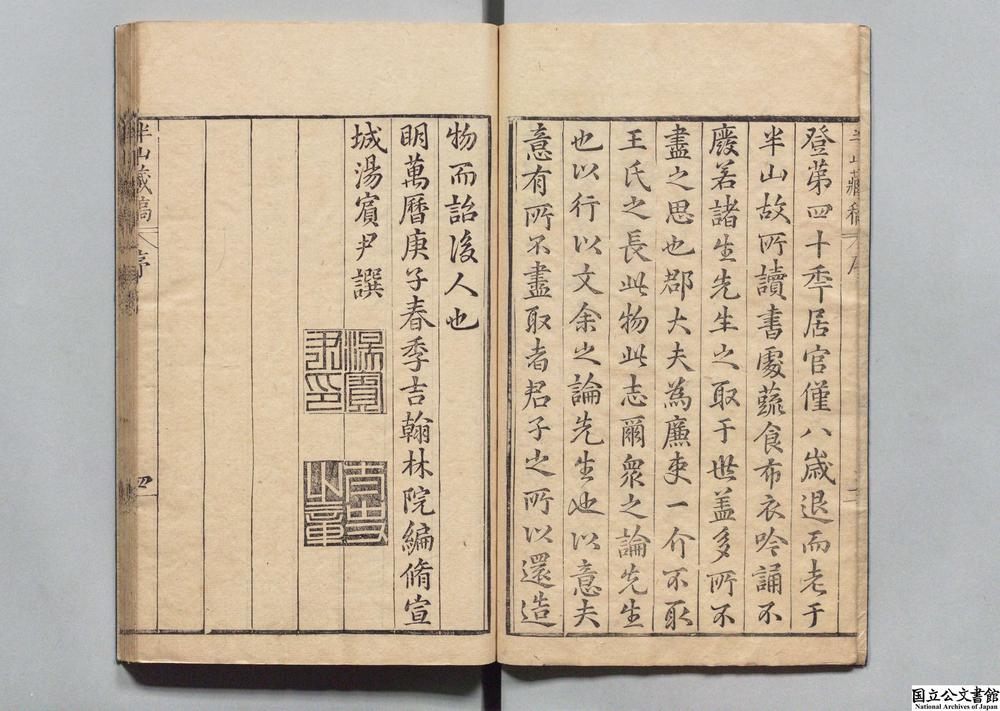 登第四十秊居官僅八歲退而老于
半山故所讀書處蔬食布衣吟誦不
廢若諸生先生之取于世蓋多所不
盡之思也郡大夫為廉吏一介不取
王氏之長此物此志爾眾之論先生
也以行以文余之論先生也以意夫
意有所不盡取者君子之所以還造
物而詒後人也
明萬曆庚子春季吉翰林院編脩宣
城湯賓尹譔
湯賓尹印
半山藏稿
序
四
国立公文書館
National Archives of Japan